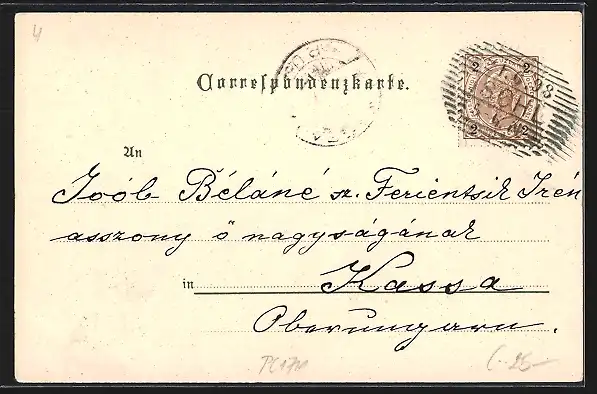 4
Correspondenzkarte.
2 2
2 2
An
Joób Béláné sz. Ferientsik Irén
asszony ő nagyságának
in Kassa
Oberungarn.